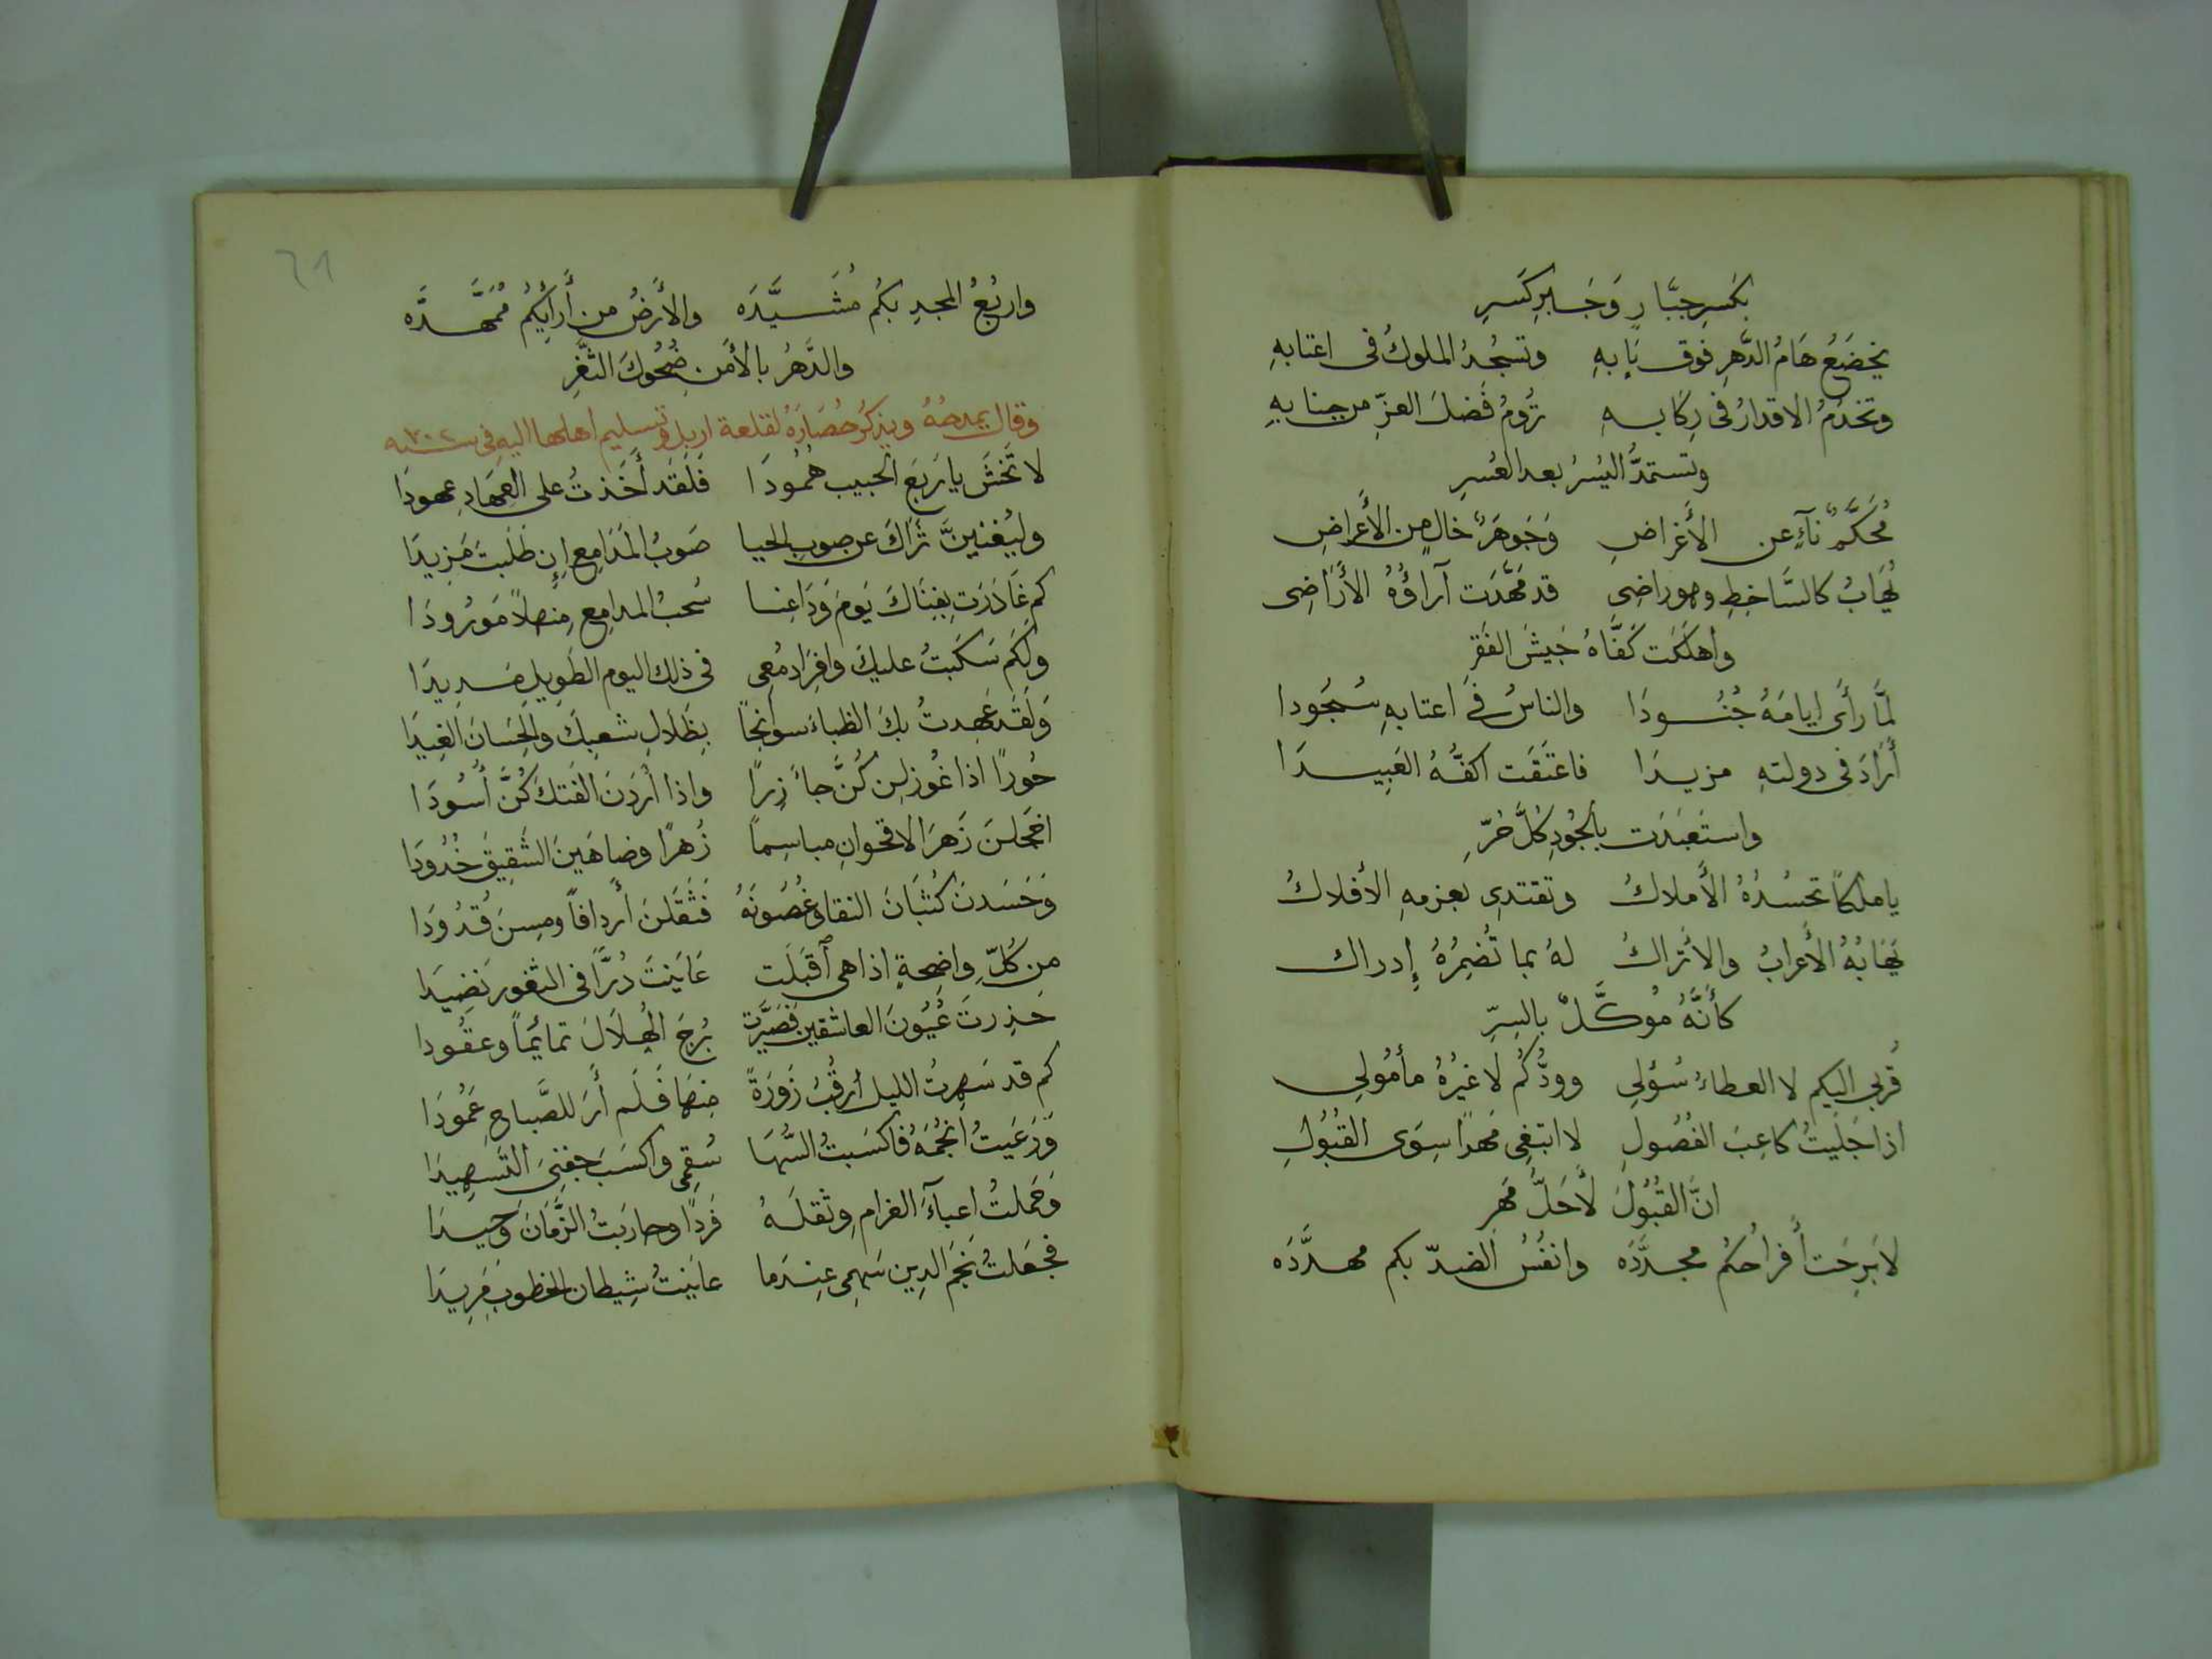 بكَسرِ جبَّارٍ وَجَابرِ كَسرِ
يَخضَعُ هَامُ الدَّهرِ فوق بَابهِ وتسجُدُ الملوكُ فى اعتابهِ
وتخدُمُ الاقدارُ فى رِكَابهِ ترُومُ فَضلَ العزِّ من جنابهِ
وتستمدُّ اليُسرَ بعد العُسرِ
مُحَكَّمٌ نآءٍ عن الأَغراضِ وَجَوهَرٌ خالٍ من الأَعراضِ
يُهَابُ كالسَّاخطِ وهو راضِى قد مَهَّدَت آراؤُهُ الأَرَاضِى
واهلَكَت كَفَّاهُ جَيشَ الفَقرِ
لمَّا رأَى ايامَهُ جُنُودَا والناسُ فى اعتابهِ سُجُودا
أَرَادَ فى دولتهِ مزيدَا فاعتَقَت اكفُّهُ العَبِيدَا
واستَعبَدَت بالجُودِ كُلَّ حُرِّ
يا ملكًا تحسُدُهُ الأَملاكُ وتقتدِى بعزمهِ الأفلاكُ
تَهَابُهُ الأَعرابُ والاَتراكُ لهُ بما تُضمِرُهُ إِدراك
كأَنَّهُ مُوكَّلٌ بالسِرِّ
قُربي اليكم لا العطاءُ سُؤلِى وودُّكُم لا غيرُهُ مأمُولِى
اذا جَلَيتُ كاعِبَ الفُصُولِ لا ابتغِى مَهرًا سِوَى القبُولِ
انَّ القبُولَ لأَجَلُّ مَهرِ
لا بَرِحَت أَفراحُكُم مجدَّدَه وانفُسُ الضدّ بكم مهدَّدَه
٦١
واربُعُ المجدِ بكُم مُشَيَّدَه والأَرضُ من أَرائِكُم مُمَهَّدَه
والدَّهرُ بالأَمن ضَحُوكَ الثَّغرِ
وقال يمدحهُ ويذكُر حُصَارَهُ لقلعة اربل وتسليم اهلها اليهِ فى سنه ٧٠٢
لا تَخشَ يا رَبعَ الحبيب هُمُودَا فَلَقَد أَخَذتُ على العِهَادِ عهودَا
وليُغنيَنَّ ثَرَاكَ عن صوبِ الحيا صَوبُ المَدَامِع إِن طَلَبتَ مَزِيدَا
كم غَادَرَت بِفِنَاكَ يَومَ وَدَاعِنا سُحبُ المدامِع مِنهلاً مَورُودَا
ولَكَم سَكَبتُ عليكَ وافِرَ ادمُعِى فى ذلك اليوم الطَوِيلِ مَدِيدَا
وَلَقَد عَهِدتُ بكَ الظباءَ سوانحًا بِظَلاَلِ شعبِكَ والحِسَانَ الغِيدَا
حُورًا اذا غُوزلن كُنَّ جآذِرًا واذا أَرَدنَ الفَتكَ كُنَّ أُسُودَا
اخجلنَ زَهرَ الاقحوانِ مباسِمًا زُهرًا وضاهَينَ الشَقِيقَ خُدُودَا
وَحَسَدنَ كُثبَانَ النقا وغُصُونَهُ فَثَقَلنَ أَردافًا ومِسنَ قُدُودَا
من كُلِّ واضِحةٍ اذا هى أَقبَلَت عَايَنتَ دُرًّا فى الثغور نَضِيدَا
حَذِرتَ عُيُونَ العاشقين فَصَيَّرَت بُرجَ الهِلاَلَ تمائمًا وعقُودا
كم قد سَهِرتُ الليل أرقُبُ زَورَةً مِنهَا فَلَم أَرَ للصَّباحِ عَمُودَا
وَرَعَيتُ انجُمَهُ فاكسَبتُ السُّهَا سُقمِى واكسَبَ جفنِىَ التَسهِيدَا
وَحَملتُ اعبآءَ الغرام وثقلَهُ فَردًا وحارَبتُ الزَّمَانَ وَحِيدَا
فجَعَلتُ نَجمَ الدِين سَهمِى عِندَما عايَنتُ شِيطان الخطوبِ مَرِيدَا